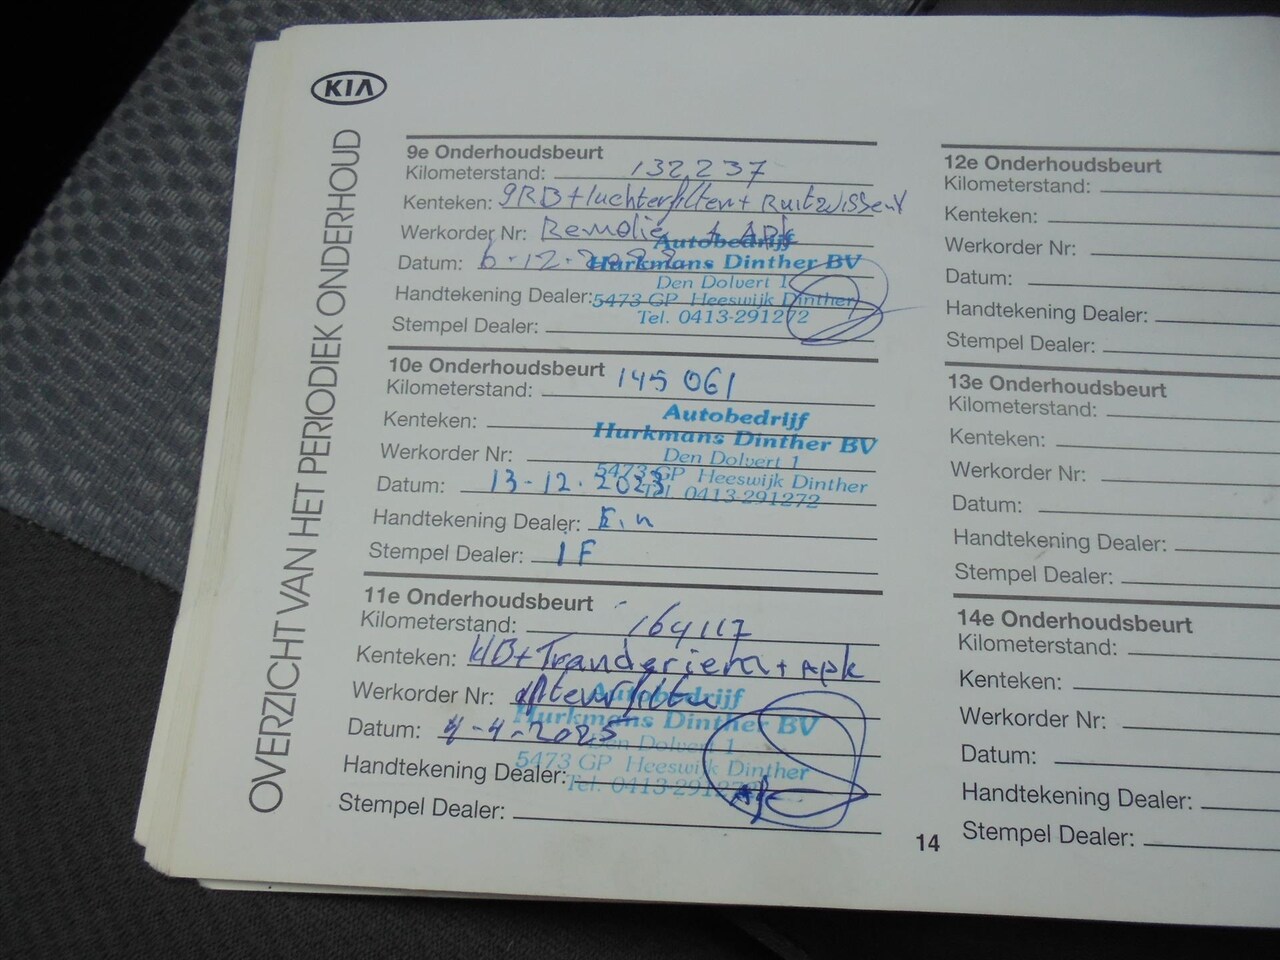 KIA
OVERZICHT VAN HET PERIODIEK ONDERHOUD
9e Onderhoudsbeurt
Kilometerstand: 132.237
Kenteken: GRB + luchterfilter + Ruitzwissent
Werkorder Nr: + APk
Datum: 6-12-
Handtekening Dealer:
Stempel Dealer:
Autobedrijf
Hurkmans Dinther BV
Den Dolvert 1
5473 GP Heeswijk Dinther
Tel. 0413-291272
10e Onderhoudsbeurt
Kilometerstand: 145 061
Kenteken:
Werkorder Nr:
Datum: 13-12-2023
Handtekening Dealer:
Stempel Dealer: 1 F
Autobedrijf
Hurkmans Dinther BV
Den Dolvert 1
5473 GP Heeswijk Dinther
Tel. 0413-291272
11e Onderhoudsbeurt
Kilometerstand: 164117
Kenteken: + Apk
Werkorder Nr:
Datum: 4-4-2025
Handtekening Dealer:
Stempel Dealer:
Autobedrijf
Hurkmans Dinther BV
Den Dolvert 1
5473 GP Heeswijk Dinther
Tel. 0413-291272
14
12e Onderhoudsbeurt
Kilometerstand:
Kenteken:
Werkorder Nr:
Datum:
Handtekening Dealer:
Stempel Dealer:
13e Onderhoudsbeurt
Kilometerstand:
Kenteken:
Werkorder Nr:
Datum:
Handtekening Dealer:
Stempel Dealer:
14e Onderhoudsbeurt
Kilometerstand:
Kenteken:
Werkorder Nr:
Datum:
Handtekening Dealer:
Stempel Dealer: